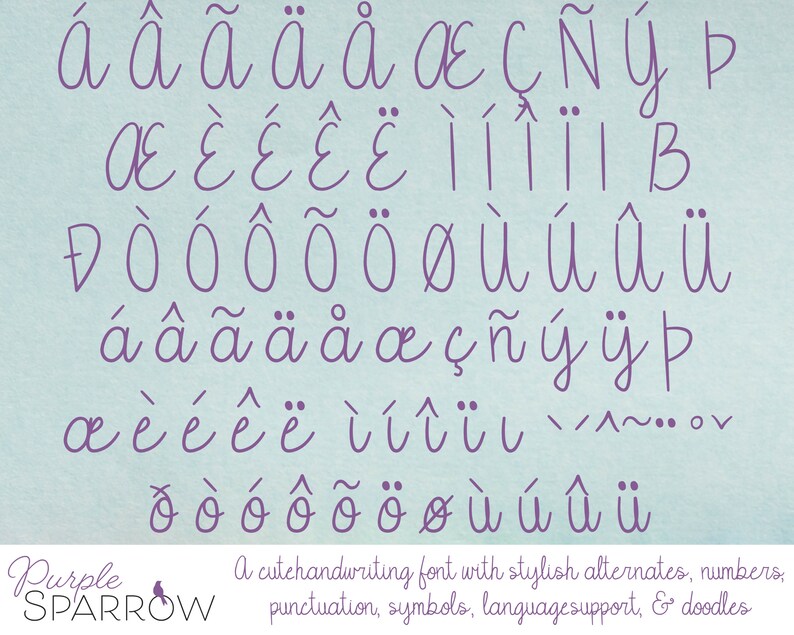 Á Â Ã Ä Å Æ Ç Ñ Ý Þ
Æ È É Ê Ë Ì Í Î Ï I ß
Ð Ò Ó Ô Õ Ö Ø Ù Ú Û Ü
á â ã ä å æ ç ñ ý ÿ þ
æ è é ê ë ì í î ï ı ` ´ ^ ~ ¨ ° ˇ
ð ò ó ô õ ö ø ù ú û ü
Purple
SPARROW
A cutehandwriting font with stylish alternates, numbers,
punctuation, symbols, languagesupport, & doodles